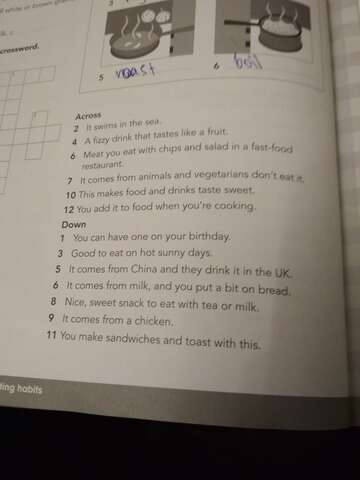 white or brown
3
crossword.
5 roast
6 boil
Across
2 It swims in the sea.
4 A fizzy drink that tastes like a fruit.
6 Meat you eat with chips and salad in a fast-food
restaurant.
7 It comes from animals and vegetarians don't eat it.
10 This makes food and drinks taste sweet.
12 You add it to food when you're cooking.
Down
1 You can have one on your birthday.
3 Good to eat on hot sunny days.
5 It comes from China and they drink it in the UK.
6 It comes from milk, and you put a bit on bread.
8 Nice, sweet snack to eat with tea or milk.
9 It comes from a chicken.
11 You make sandwiches and toast with this.
habits